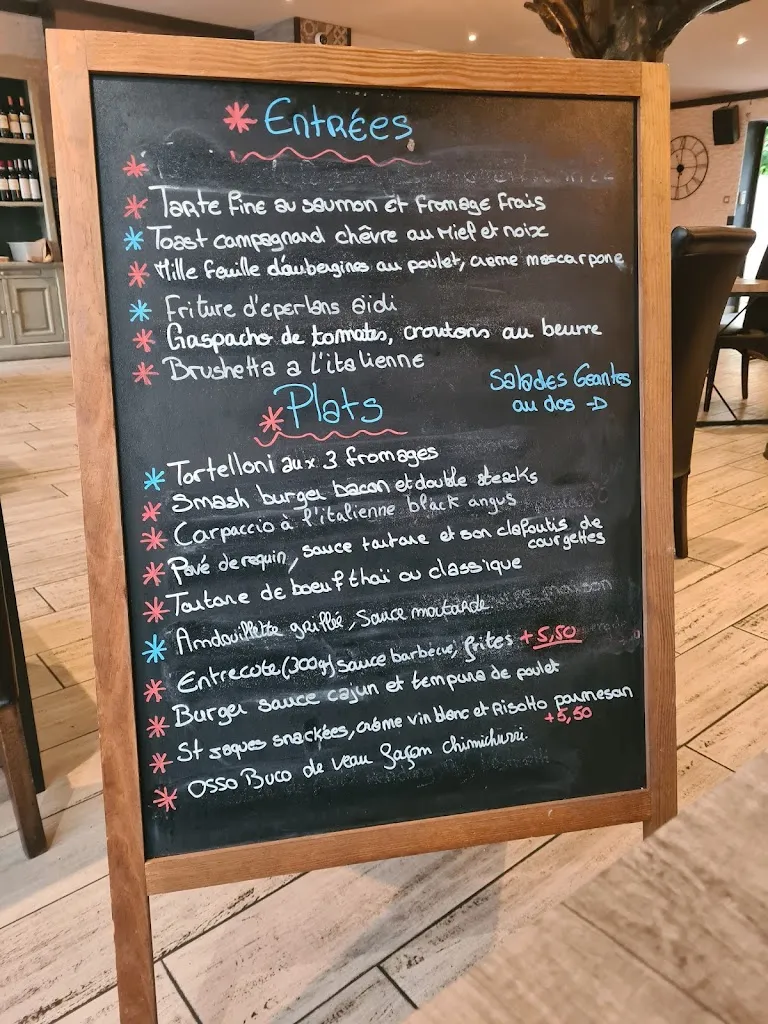 Entrées
Tarte fine au saumon et fromage frais
Toast campagnard chêvre au miel et noix
Mille feuille d'aubergines au poulet, crème mascarpone
Friture d'eperlans aïdi
Gaspacho de tomates, croutons au beurre
Brushetta a l'italienne
Salades Géantes
au dos -D
Plats
Tortelloni aux 3 fromages
Smash burger bacon et double steacks
Carpaccio à l'italienne black angus
Pavé de requin, sauce tartare et son clafoutis de
courgettes
Tartare de boeuf thaï ou classique
Andouillette grillée, sauce moutarde
Entrecote (300g) sauce barbecue, frites +5,50
Burger sauce cajun et tempura de poulet
St Jaques snackées, crème vin blanc et Risotto parmesan
+5,50
Osso Buco de veau façon chimichurri.